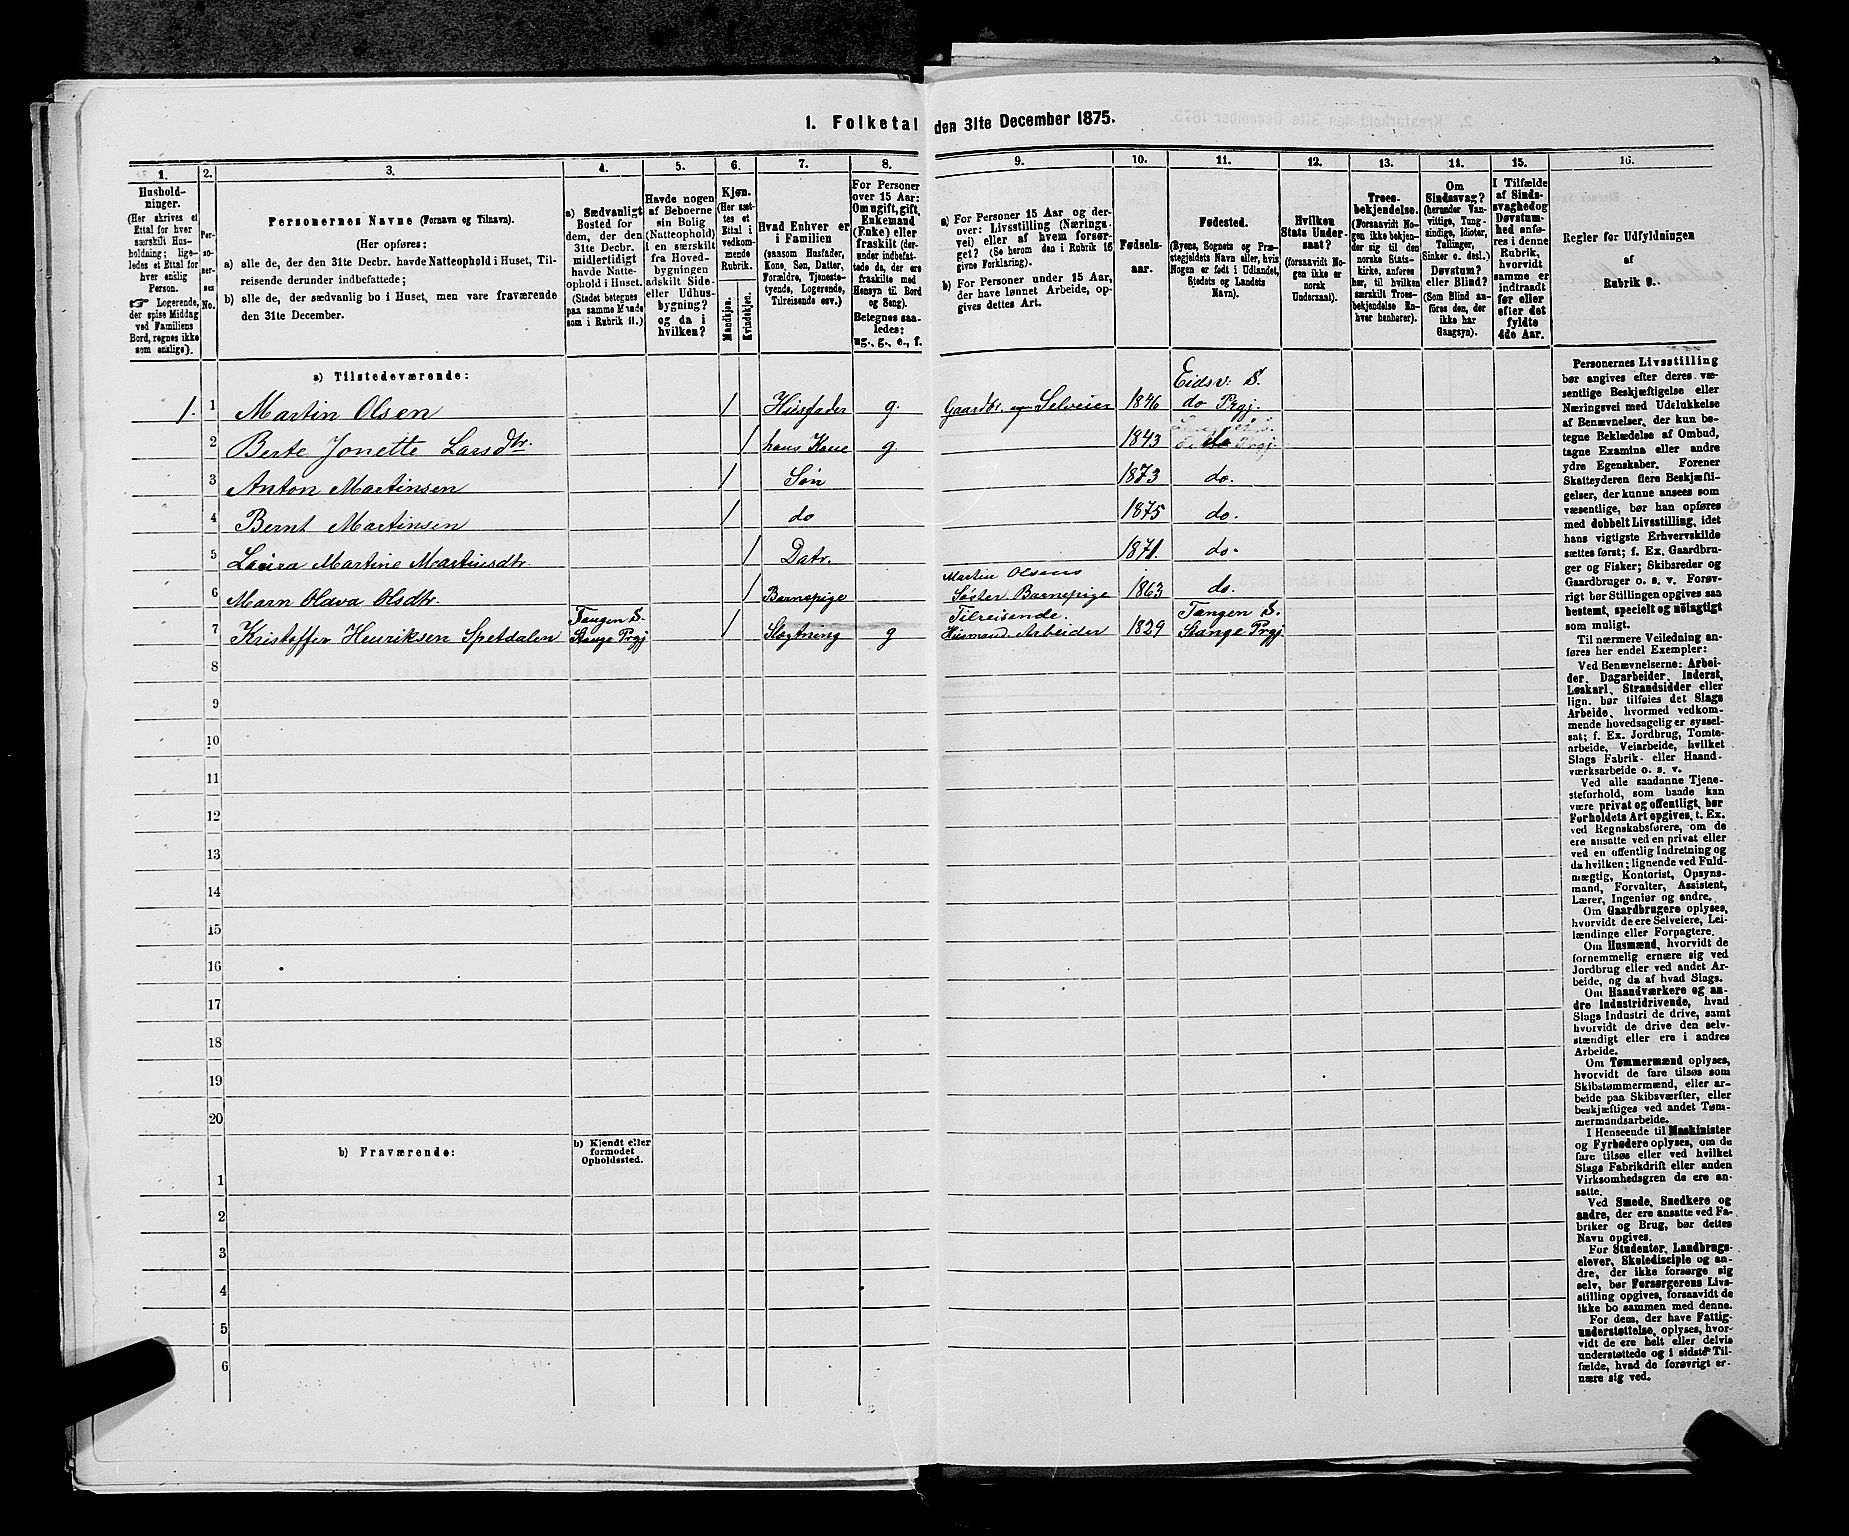 1. Folketal den 31te December 1875.
1. 2. 3. 4. 5. 6. 7. 8. 9. 10. 11. 12. 13. 14. 15. 16.
Hushold-
ninger.
(Her skrives et
Ettal for hver
særskilt Hus-
holdning; lige-
ledes et Ettal for
hver enslig
Person.
☞ Logerende,
der spise Middag
ved Familiens
Bord, regnes ikke
som enslige).
Per-
so-
ner-
nes
No.
Personernes Navne (Fornavn og Tilnavn).
(Her opføres:
a) alle de, der den 31te Decbr. havde Natteophold i Huset, Til-
reisende derunder indbefattede;
b) alle de, der sædvanlig bo i Huset, men vare fraværende
den 31te December.
a) Sædvanligt
Bosted for
dem, der den
31te Decbr.
midlertidigt
havde Natte-
ophold i Huset.
(Stedet betegnes
paa samme Maade
som i Rubrik 11.)
Havde nogen
af Beboerne
sin Bolig
(Natteophold)
i en særskilt
fra Hoved-
bygningen
adskilt Side-
eller Udhus-
bygning?
og da i
hvilken?
Kjøn.
(Her sæt-
tes et
Ettal i
vedkom-
mende
Rubrik.
Mandkjøn.
Kvindekjøn.
Hvad Enhver er
i Familien
(saasom Husfader,
Kone, Søn, Datter,
Forældre, Tjeneste-
tyende, Logerende,
Tilreisende osv.)
For Personer
over 15 Aar:
Om ugift, gift,
Enkemand
(Enke) eller
fraskilt (der-
under indbefat-
tede de, der
ere fraskilte med
Hensyn til Bord
og Seng).
Betegnes saa-
ledes:
ug., g., e., f.
a) For Personer 15 Aar og der-
over: Livsstilling (Nærings-
vei) eller af hvem forsør-
get? (Se herom den i Rubrik 16
givne Forklaring).
b) For Personer under 15 Aar,
der have lønnet Arbeide, op-
gives dettes Art.
Fødsels-
aar.
Fødested.
(Byens, Sognets og Præ-
stegjeldets Navn, eller, hvis
Nogen er født i Udlandet,
Stedets og Landets
Navn).
Hvilken
Stats Under-
saat?
(forsaavidt No-
gen ikke er
norsk
Undersaat).
Troes-
bekjendelse.
(Forsaavidt No-
gen ikke bekjen-
der sig til den
norske Stats-
kirke, anføres
her, til hvilken
særskilt Troes-
bekjendelse En-
hver henhører).
Om
Sindssvag?
(herunder Van-
vittige, Tung-
sindige, Idioter,
Tullinger,
Sinker o. desl.)
Døvstum?
eller Blind?
(Som Blind an-
føres den, der
ikke har
Gangsyn).
I Tilfælde
af Sinds-
svaghed og
Døvstum-
hed anfø-
res i denne
Rubrik,
hvorvidt
samme er
indtraadt
før eller
efter det
fyldte
4de Aar.
Regler for Udfyldningen
af
Rubrik 9.
a) Tilstedeværende:
Eidsv: S.
1. 1 Martin Olsen 1 Husfader g. Gaardbr. Selveier 1846 do Prgj.
2 Berte Jonette Larsdtr. 1 hans Kone g 1843 Prgj.
3 Anton Martinsen 1 Søn 1873 do.
4 Bernt Martinsen 1 do 1875 do.
5 Laura Martine Martinsdtr. 1 Datr. 1871. do.
Martin Olsens
6 Marn Olava Olsdtr. 1 Barnepige Søster Barnepige 1863 do.
Tangen S. Tilreisende. Tangen S.
7 Kristoffer Henriksen Spetdalen Stange Prgj 1 Slægtning g Husmand. Arbeider 1829 Stange Prgj.
8
9
10
11
12
13
14
15
16
17
18
19
20
b) Fraværende:
b) Kjendt eller
formodet
Opholdssted.
1
2
3
4
5
6
Personernes Livsstilling
bør angives efter deres væ-
sentlige Beskjæftigelse eller
Næringsvei med Udelukkelse
af Benævnelser, der kun be-
tegne Beklædelse af Ombud,
tagne Examina eller andre
ydre Egenskaber. Forener
Skatteyderen flere Beskjæfti-
gelser, der kunne ansees som
væsentlige, bør han opføres
med dobbelt Livsstilling, idet
hans vigtigste Erhvervskilde
sættes først; f. Ex. Gaardbru-
ger og Fisker; Skibsreder og
Gaardbruger o. s. v. Forøv-
rigt bør Stillingen opgives saa
bestemt, specielt og nøiagtigt
som muligt.
Til nærmere Veiledning an-
føres her endel Exempler:
Ved Benævnelserne: Arbei-
der, Dagarbeider, Inderst,
Løskarl, Strandsidder eller
lign. bør tilføies det Slags
Arbeide, hvormed vedkom-
mende hovedsagelig er syssel-
sat; f. Ex. Jordbrug, Tomte-
arbeide, Veiarbeide, hvilket
Slags Fabrik- eller Haand-
værksarbeide o. s. v.
Ved alle saadanne Tjene-
steforhold, som baade kan
være privat og offentligt, bør
Forholdets Art opgives, t. Ex.
ved Regnskabsførere, om de
ere ansatte ved en privat eller
ved en offentlig Indretning og
da hvilken; lignende ved Fuld-
mægtig, Kontorist, Opsyns-
mand, Forvalter, Assistent,
Lærer, Ingeniør og andre.
Om Gaardbrugere oplyses,
hvorvidt de ere Selveiere, Lei-
lændinge eller Forpagtere.
Om Husmænd, hvorvidt de
fornemmelig ernære sig ved
Jordbrug eller ved andet Ar-
beide, og da af hvad Slags.
Om Haandværkere og an-
dre Industridrivende, hvad
Slags Industri de drive, samt
hvorvidt de drive den selv-
stændigt eller ere i andres
Arbeide.
Om Tømmermænd oplyses,
hvorvidt de fare tilsøs som
Skibstømmermænd, eller ar-
beide paa Skibsværfter, eller
beskjæftiges ved andet Tøm-
mermandsarbeide.
I Henseende til Maskinister
og Fyrbødere oplyses, om de
fare tilsøs eller ved hvilket
Slags Fabrikdrift eller anden
Virksomhedsgren de ere an-
satte.
Ved Smede, Snedkere og
andre, der ere ansatte ved Fa-
briker og Brug, bør dettes
Navn opgives.
For Studenter, Landbrugs-
elever, Skoledisciple og an-
dre, der ikke forsørge sig
selv, bør Forsørgerens Livs-
stilling opgives, forsaavidt de
ikke bo sammen med denne.
For dem, der have Fattig-
understøttelse, oplyses, hvor-
vidt de ere helt eller delvis
understøttede og i sidste Til-
fælde, hvad de forøvrigt er-
nære sig ved.